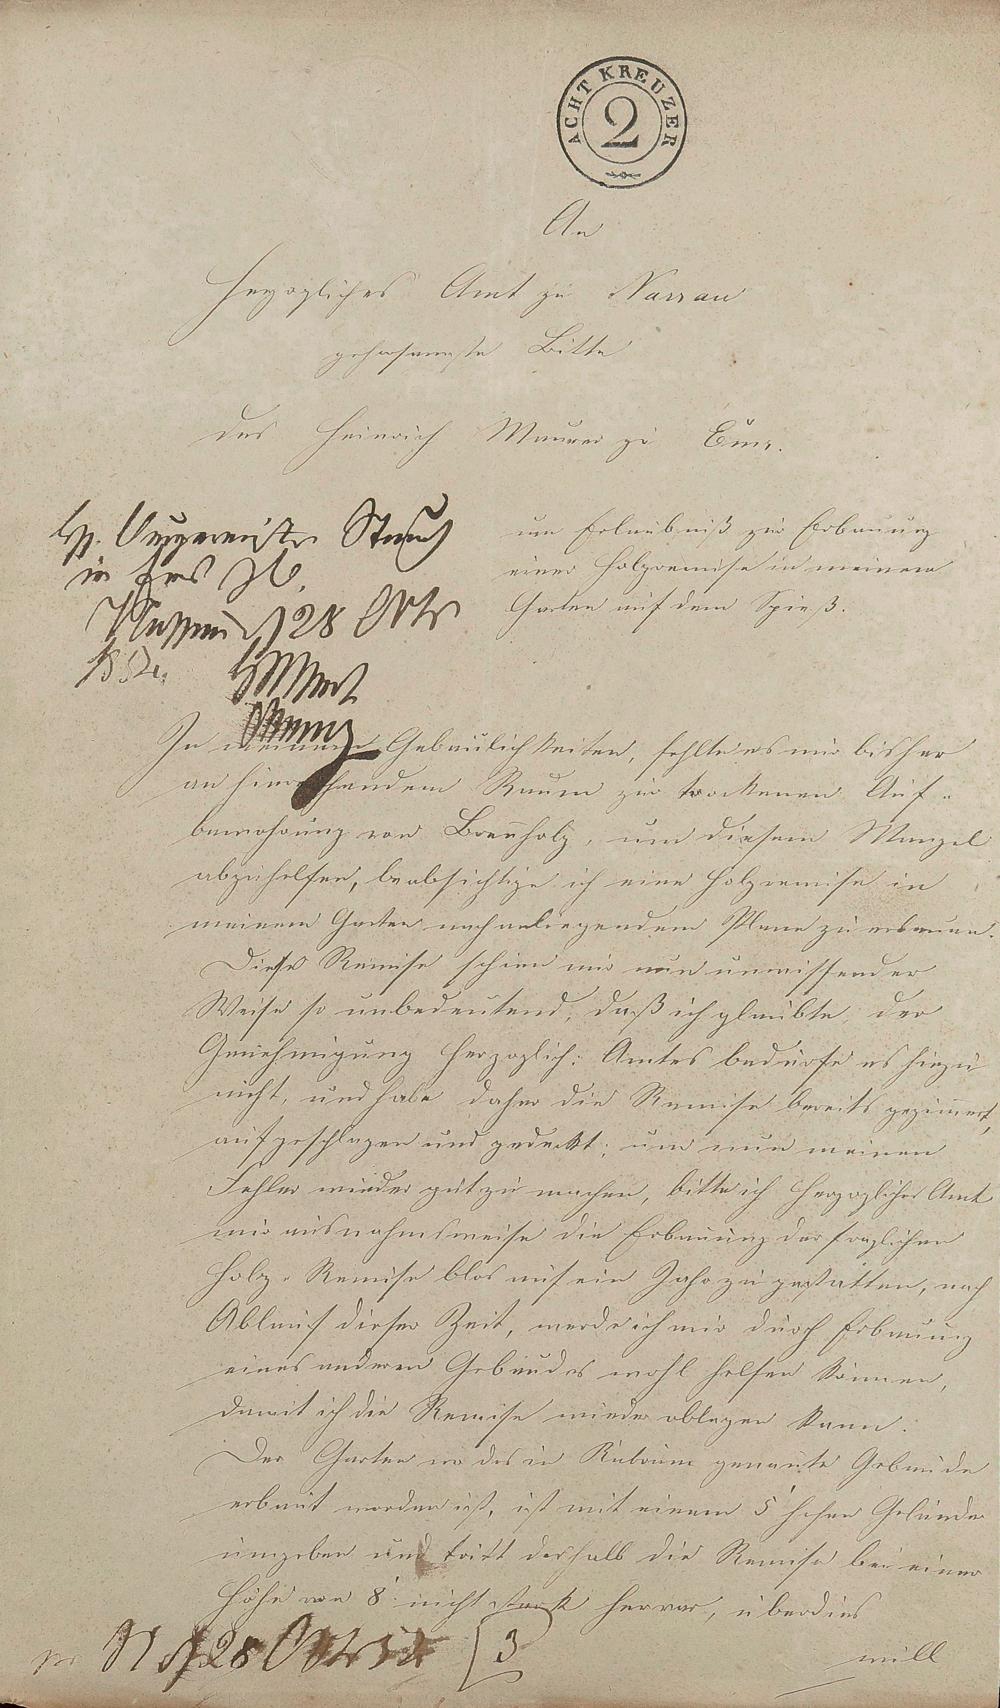 ACHT KREUZER
2
An
Herzogliches Amt zu Nassau
gehorsamste Bitte
des Heinrich Maurer zu Ems.
um Erlaubniß zur Erbauung
einer Holzremise in meinem
Garten auf dem Spieß.
H. Bürgermeister Strauch
in Ems
Nassau d 28 Octbr
1852.
In meinen Gebäulichkeiten, fehlte es mir bisher
an hinreichendem Raum zur trockenen Auf-
bewahrung von Brennholz, um diesem Mangel
abzuhelfen, beabsichtige ich eine Holzremise in
meinem Garten nach anliegendem Plane zu erbauen.
Diese Remise schien mir nun unwissender
Weise so unbedeutend, daß ich glaubte, der
Genehmigung Herzoglich: Amtes bedürfe es hiezu
nicht, und habe daher die Remise bereits gezimmert,
aufgeschlagen und gedeckt; um nun meinen
Fehler wieder gut zu machen, bitte ich Herzogliches Amt
mir ausnahmsweise die Erbauung der fraglichen
Holz-Remise blos auf ein Jahr zu gestatten, nach
Ablauf dieser Zeit, werde ich mir durch Erbauung
eines anderen Gebäudes wohl helfen können,
damit ich die Remise wieder ablegen kann.
Der Garten wo das in Rubrum genannte Gebäude
erbaut worden ist, ist mit einem 5' hohen Geländer
umgeben und tritt deshalb die Remise bei einer
Höhe von 8' nicht stark hervor, überdies
will
pr N d 28 Octbr 52 3